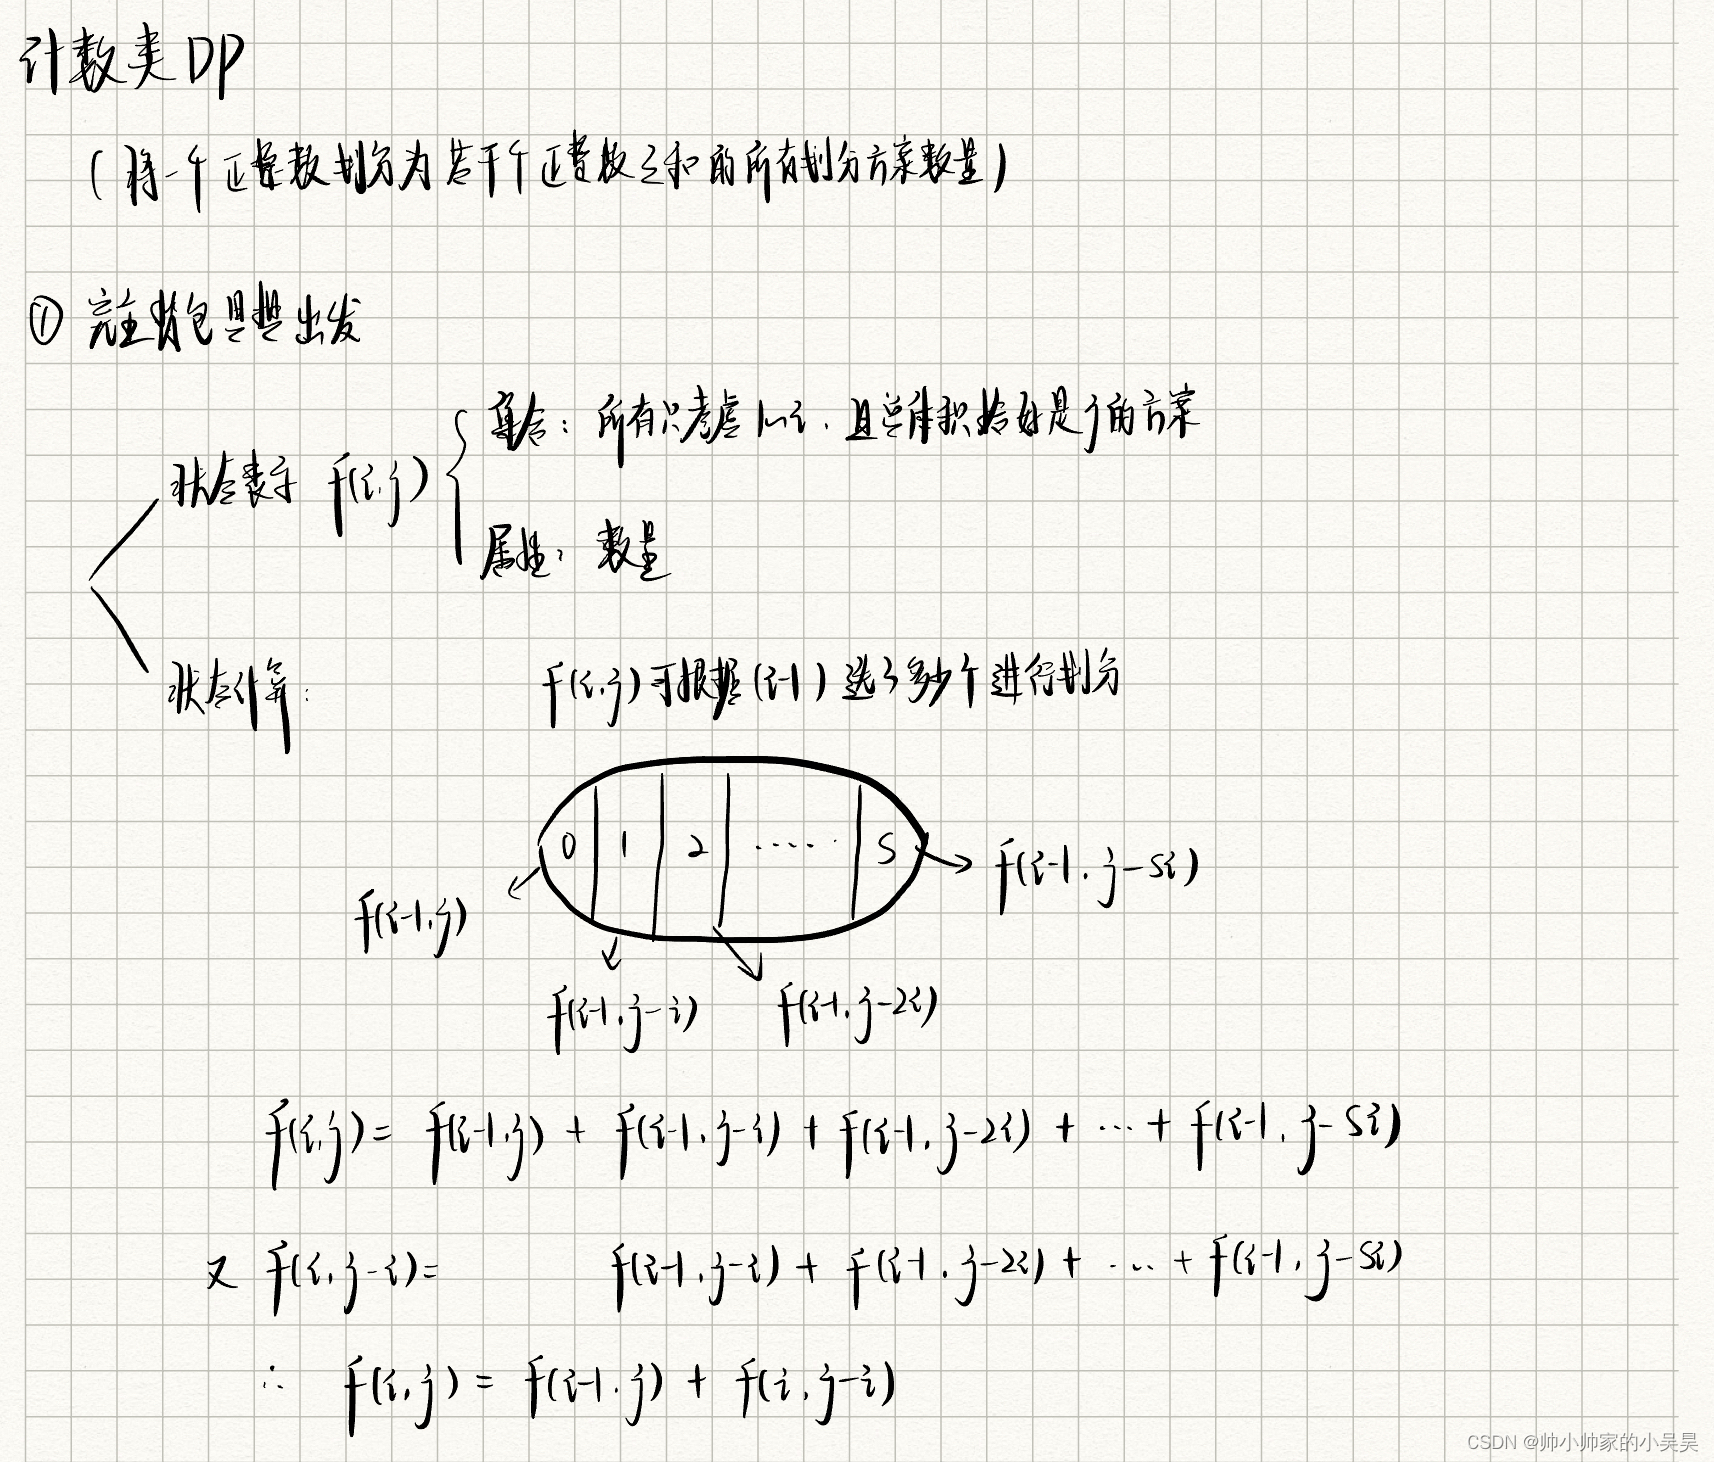 计数类DP
(将一个正整数划分为若干个正整数之和的所有划分方案数量)
① 完全背包思想出发
状态表示 f(i,j)
集合: 所有只考虑1~i, 且总体积恰好是j的方案
属性: 数量
状态计算:
f(i,j)可根据(i-1)选了多少个进行划分
0 1 2 ...... S
f(i-1,j-Si)
f(i-1,j)
f(i-1,j-i) f(i-1,j-2i)
f(i,j)= f(i-1,j) + f(i-1,j-i) + f(i-1,j-2i) + ... + f(i-1,j-Si)
又 f(i,j-i)= f(i-1,j-i) + f(i-1,j-2i) + ... + f(i-1,j-Si)
∴ f(i,j) = f(i-1,j) + f(i,j-i)
CSDN @帅小帅家的小吴昊